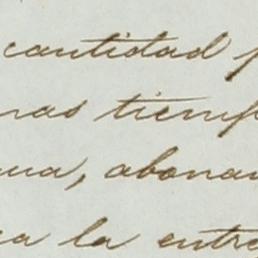 cantidad p
nas tiemp
ua, abona
a la entre